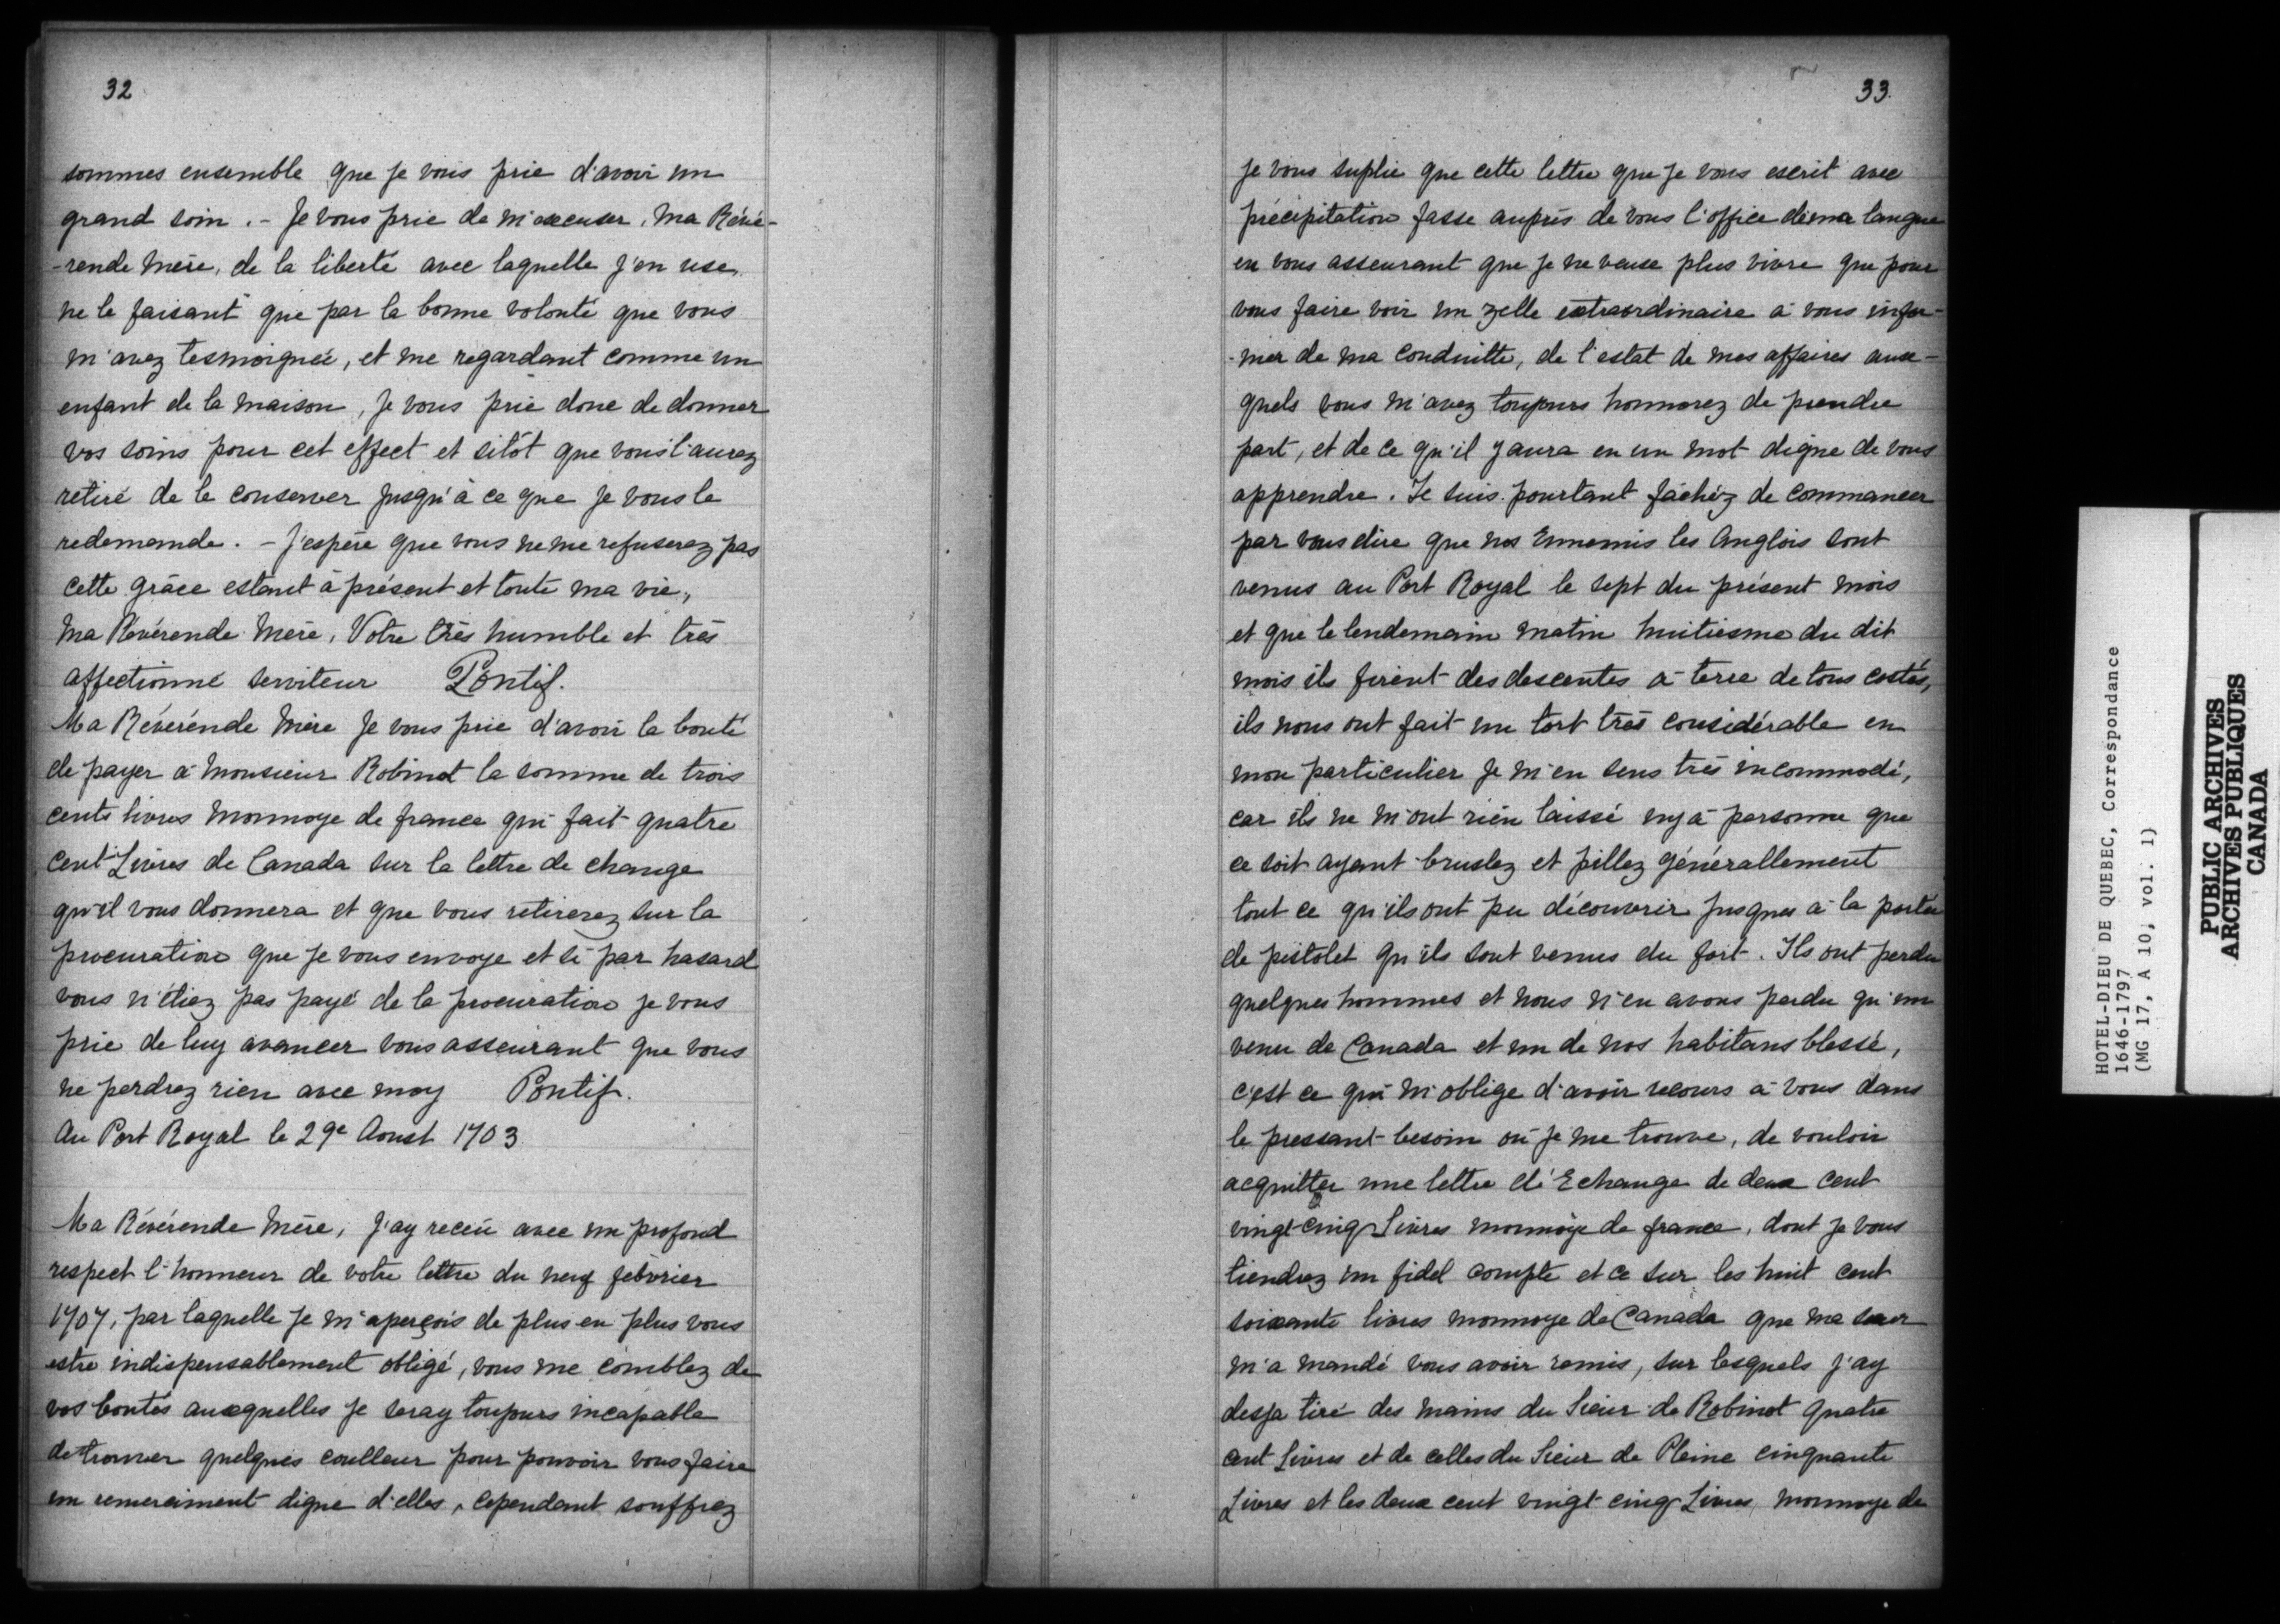 32
sommes ensemble que je vous prie d'avoir un
grand soin. - Je vous prie de m'excuser, ma Révé-
-rende Mère, de la liberté avec laquelle j'en use,
ne le faisant que par la bonne volonté que vous
m'avez tesmoignée, et me regardant comme un
enfant de la maison, je vous prie donc de donner
vos soins pour cet effect et sitôt que vous l'aurez
retiré de le conserver jusqu'à ce que je vous le
redemande. - J'espère que vous ne me refuserez pas
cette grâce estant à présent et toute ma vie,
Ma Révérende Mère, Votre très humble et très
affectionné serviteur Pontif.
Ma Révérende Mère Je vous prie d'avoir la bonté
de payer à Monsieur Robinot la somme de trois
cents livres monnoye de france qui fait quatre
cent Livres de Canada sur la lettre de change
qu'il vous donnera et que vous retirerez sur la
procuration que je vous envoye et si par hasard
vous n'étiez pas payé de la procuration je vous
prie de luy avancer vous asseurant que vous
ne perdrez rien avec moy Pontif.
Au Port Royal le 29e Aoust 1703
Ma Révérende Mère, J'ay receu avec un profond
respect l'honneur de votre lettre du neuf febvrier
1707, par laquelle je m'aperçois de plus en plus vous
estre indispensablement obligé, vous me comblez de
vos bontés auxquelles je seray toujours incapable
de trouver quelques coulleur pour pouvoir vous faire
un remerciment digne d'elles, cependant souffrez
33
je vous suplie que cette lettre que je vous escrit avec
précipitation fasse auprès de vous l'office de ma langue
en vous asseurant que je ne veux plus vivre que pour
vous faire voir un zelle extraordinaire à vous infor-
-mer de ma conduitte, de l'estat de mes affaires aux-
quels vous m'avez toujours honnorez de prendre
part, et de ce qu'il y aura en un mot digne de vous
apprendre. Je suis pourtant fâchéz de commancer
par vous dire que nos Ennemis les Anglois sont
venus au Port Royal le sept du présent mois
et que le lendemain matin huitiesme du dit
mois ils firent des descentes à terre de tous costés,
ils nous ont fait un tort très considérable en
mon particulier je m'en sens très incommodé,
car ils ne m'ont rien laissé ny à personne que
ce soit ayant bruslez et pillez générallement
tout ce qu'ils ont pu découvrir jusques à la portée
de pistolet qu'ils sont venus du fort. Ils ont perdu
quelques hommes et nous n'en avons perdu qu'un
venu de Canada et un de nos habitans blessé,
c'est ce qui m'oblige d'avoir recours à vous dans
le pressant besoin où je me trouve, de vouloir
acquitter une lettre d'Echange de deux cent
vingt-cinq Livres monnoye de france, dont je vous
tiendrez un fidel compte et ce sur les huit cent
soixante livres monnoye de Canada que ma sœur
m'a mandé vous avoir remis, sur lesquels j'ay
desja tiré des mains du Sieur de Robinot quatre
cent Livres et de celles du Sieur de Pleine cinquante
Livres et les deux cent vingt-cinq Livres, monnoye de
HOTEL-DIEU DE QUEBEC, Correspondance
1646-1797
(MG 17, A 10, vol. 1)
PUBLIC ARCHIVES
ARCHIVES PUBLIQUES
CANADA